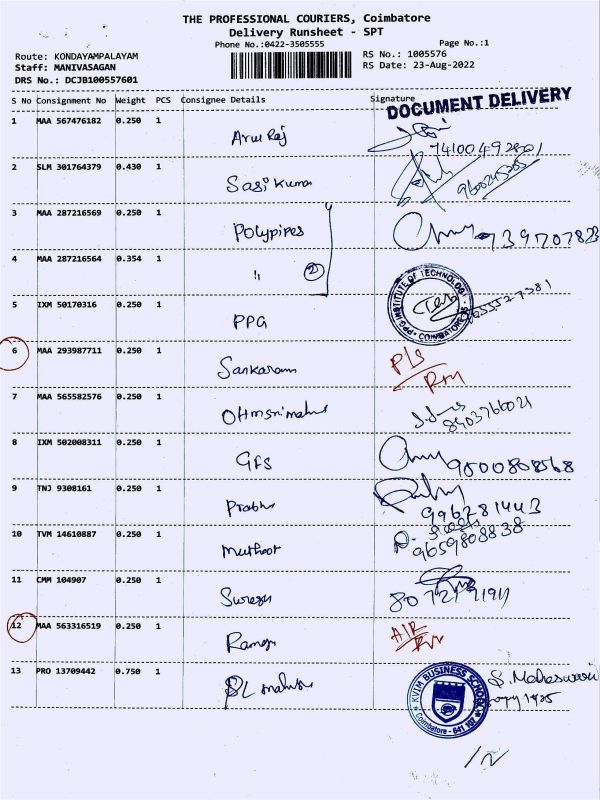 THE PROFESSIONAL COURIERS, Coimbatore
Delivery Runsheet - SPT
Phone No.:0422-3505555
Page No.:1
Route: KONDAYAMPALAYAM
Staff: MANIVASAGAN
DRS No.: DCJB100557601
RS No.: 1005576
RS Date: 23-Aug-2022
S No Consignment No Weight PCS Consignee Details Signature
DOCUMENT DELIVERY
1 MAA 567476182 0.250 1 Arul Raj
2 SLM 301764379 0.430 1 Sasi Kumar
3 MAA 287216569 0.250 1 Polypipes
4 MAA 287216564 0.354 1 " 2
5 IXM 50170316 0.250 1 PPG
PPG INSTITUTE OF TECHNOLOGY
6 MAA 293987711 0.250 1 Sankaram
7 MAA 565582576 0.250 1
8403766021
8 IXM 502008311 0.250 1 GFS 9500808568
9 TNJ 9308161 0.250 1 Prabhu 996281443
10 TVM 14610887 0.250 1 Muthoot 9659808838
11 CMM 104907 0.250 1 Suresh
12 MAA 563316519 0.250 1
13 PRO 13709442 0.750 1
KVIM BUSINESS SCHOOL
Coimbatore - 641 107
S. Maheswari